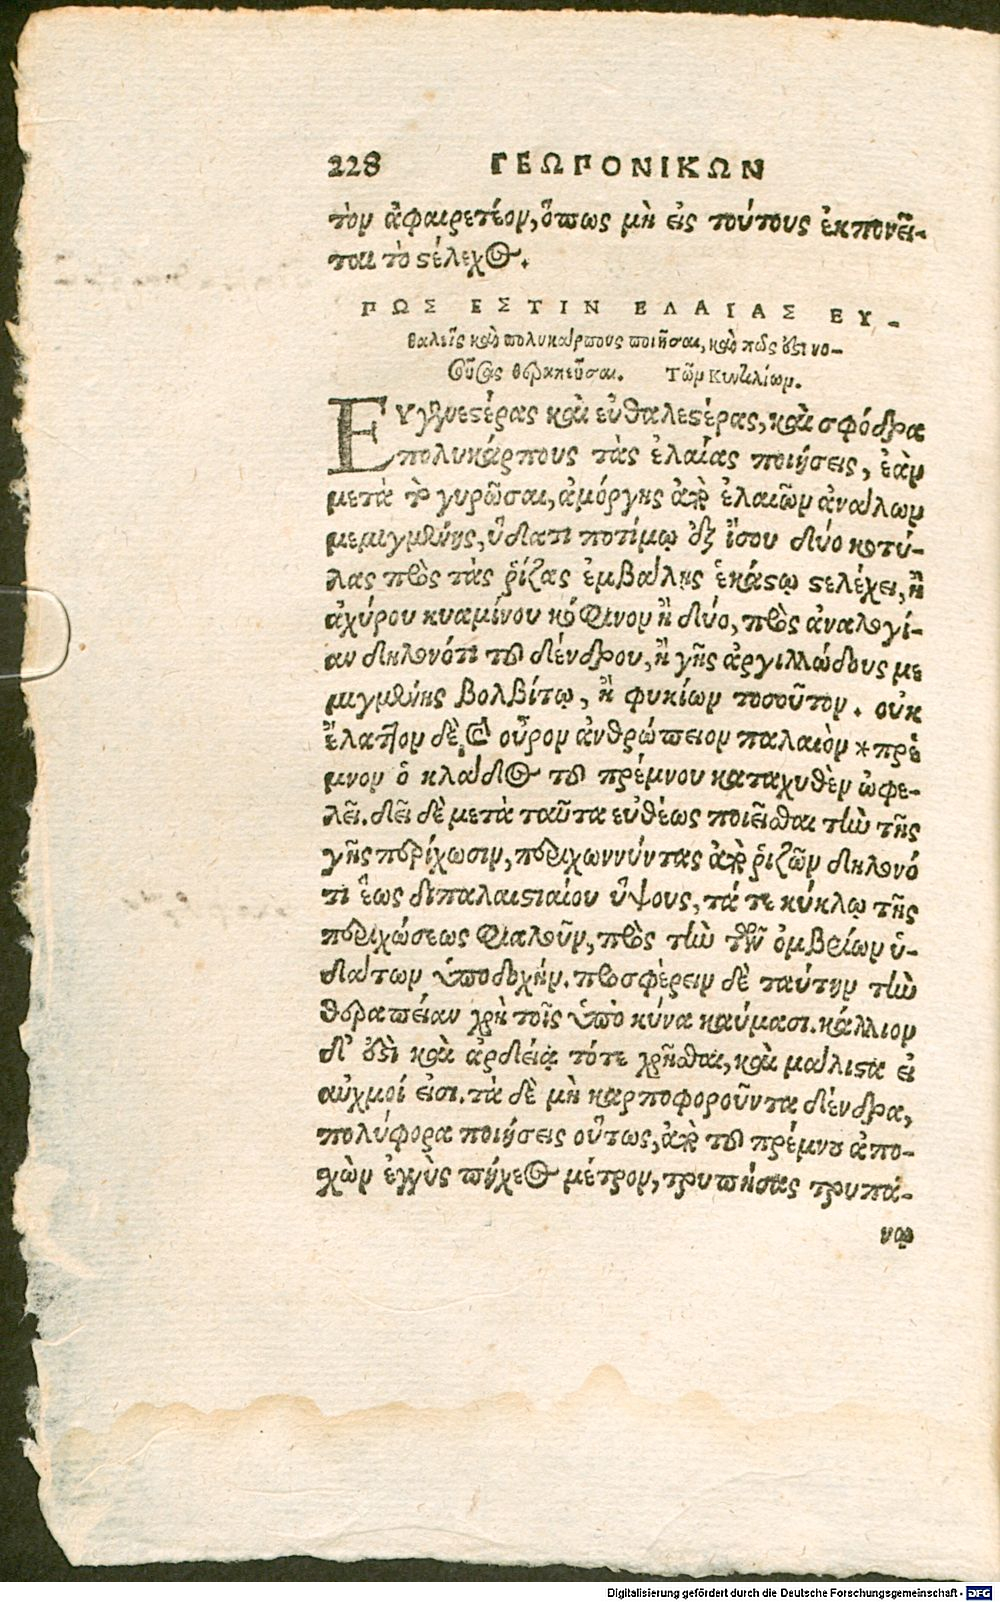 228 ΓΕΩΠΟΝΙΚΩΝ
τὸν ἀφαιρετέον, ὅπως μὴ εἰς τούτους ἐκπονεῖ-
ται τὸ στέλεχος.
ΠΩΣ ΕΣΤΙΝ ΕΛΑΙΑΣ ΕΥ-
θαλεῖς καὶ πολυκάρπους ποιῆσαι, καὶ πῶς ἔστι νο-
σούσας θεραπεῦσαι. Τῶν Κυντιλίων.
ΕΥγενεστέρας καὶ εὐθαλεστέρας, καὶ σφόδρα
πολυκάρπους τὰς ἐλαίας ποιήσεις, ἐὰν
μετὰ τὸ γυρῶσαι, ἀμόργης ἀπὸ ἐλαιῶν ἀνάλων
μεμιγμένης, ὕδατι ποτίμῳ ἐξ ἴσου δύο κοτύ-
λας πρὸς τὰς ῥίζας ἐμβάλῃς ἑκάστῳ στελέχει, ἢ
ἀχύρου κυαμίνου κόφινον ἢ δύο, πρὸς ἀναλογί-
αν δηλονότι τοῦ δένδρου, ἢ γῆς ἀργιλλώδους με
μιγμένης βολβίτῳ, ἢ φυκίων τοσοῦτον. οὐκ
ἔλαττον δὲ καὶ οὖρον ἀνθρώπειον παλαιὸν *πρέ
μνον ὁ κλάδος τοῦ πρέμνου καταχυθὲν ὠφε-
λεῖ. δεῖ δὲ μετὰ ταῦτα εὐθέως ποιεῖσθαι τὴν τῆς
γῆς περίχωσιν, περιχωννύντας ἀπὸ ῥιζῶν δηλονό
τι ἕως διπαλαιστιαίου ὕψους, τά τε κύκλῳ τῆς
περιχώσεως φιαλοῦν, πρὸς τὴν τῶν ὀμβρίων ὑ-
δάτων ὑποδοχήν. προσφέρειν δὲ ταύτην τὴν
θεραπείαν χρὴ τοῖς ὑπὸ κύνα καύμασι. κάλλιον
δ' ἐστὶ καὶ ἀρδείᾳ τότε χρῆσθαι, καὶ μάλιστα εἰ
αὐχμοί εἰσι. τὰ δὲ μὴ καρποφοροῦντα δένδρα,
πολύφορα ποιήσεις οὕτως, ἀπὸ τοῦ πρέμνου ἀπο-
χὼν ἐγγὺς πήχεος μέτρον, τρυπήσας τρυπά-
νῳ
Digitalisierung gefördert durch die Deutsche Forschungsgemeinschaft - DFG